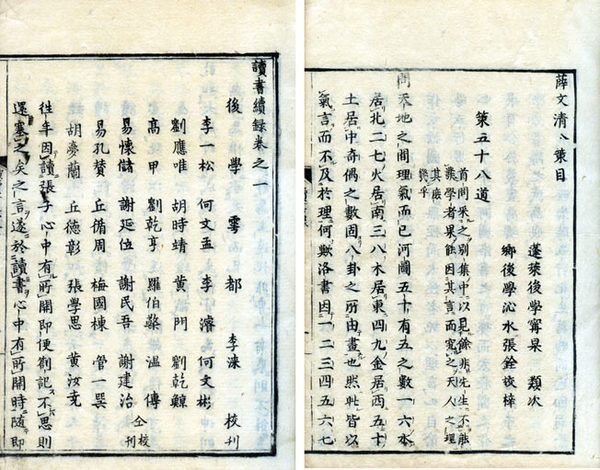 薛文清公策目
蓬萊後學甯杲 類次
鄉後學沁水張銓校梓
策五十八道
首問策之別集中以見餘非先生不能
業學者果能因其言而究之天人之理
其庶
幾乎
問天地之間理氣而已河圖五十有五之數一六水
居北二七火居南三八木居東四九金居西五十
土居中奇偶之數固八卦之所由畫也然皆以
氣言而不及於理何歟洛書因一二三四五六七
讀書續錄卷之一
後學雩都李淶校刊
李一松 何文孟 李濬 何文彬
劉應唯 胡時靖 黃門 劉乾鯨
高甲 劉乾亨 羅伯槩 溫傳
仝校刊
易懐 謝廷位 謝民吾 謝建治
易孔贊 丘俻周 梅國棟 管一巽
胡夢蘭 丘德彰 張學思 黃汝
徃年因讀張子心中有所開即便劄記不思則
還塞之矣之言遂於讀書心中有所開時隨即